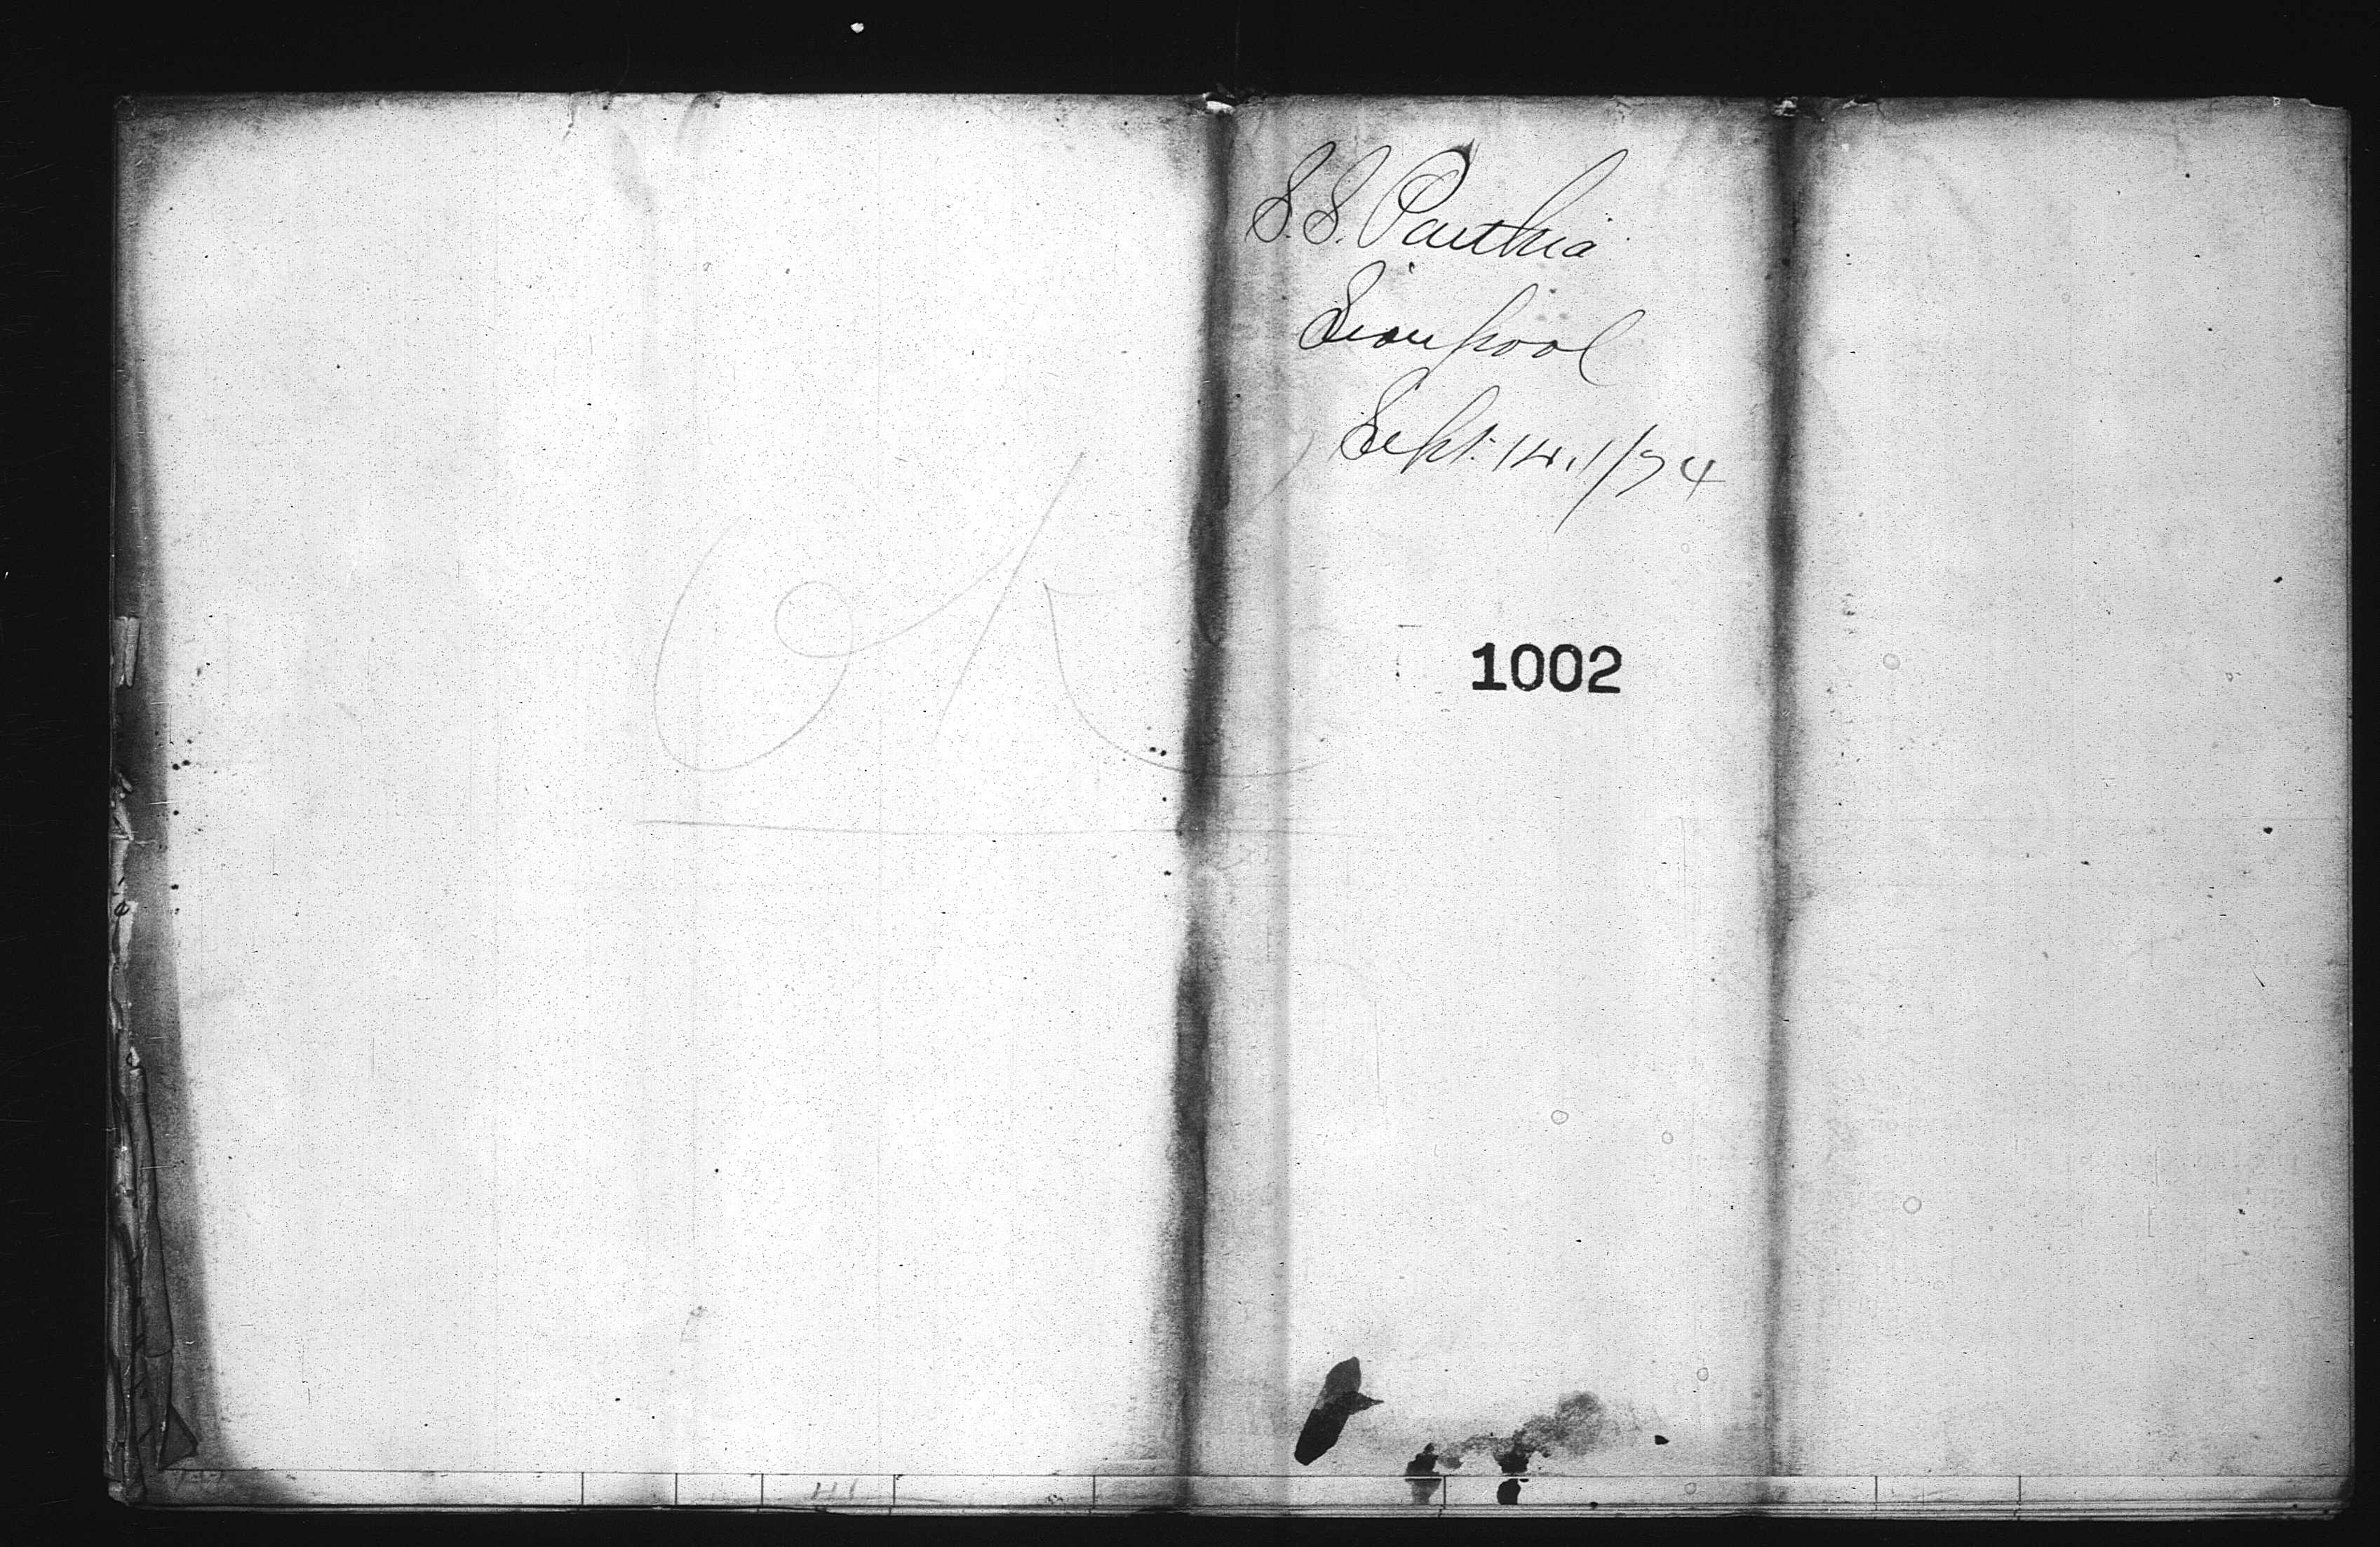 S.S. Parthia
Liverpool
Sept. 14. 1/74
1002
OK